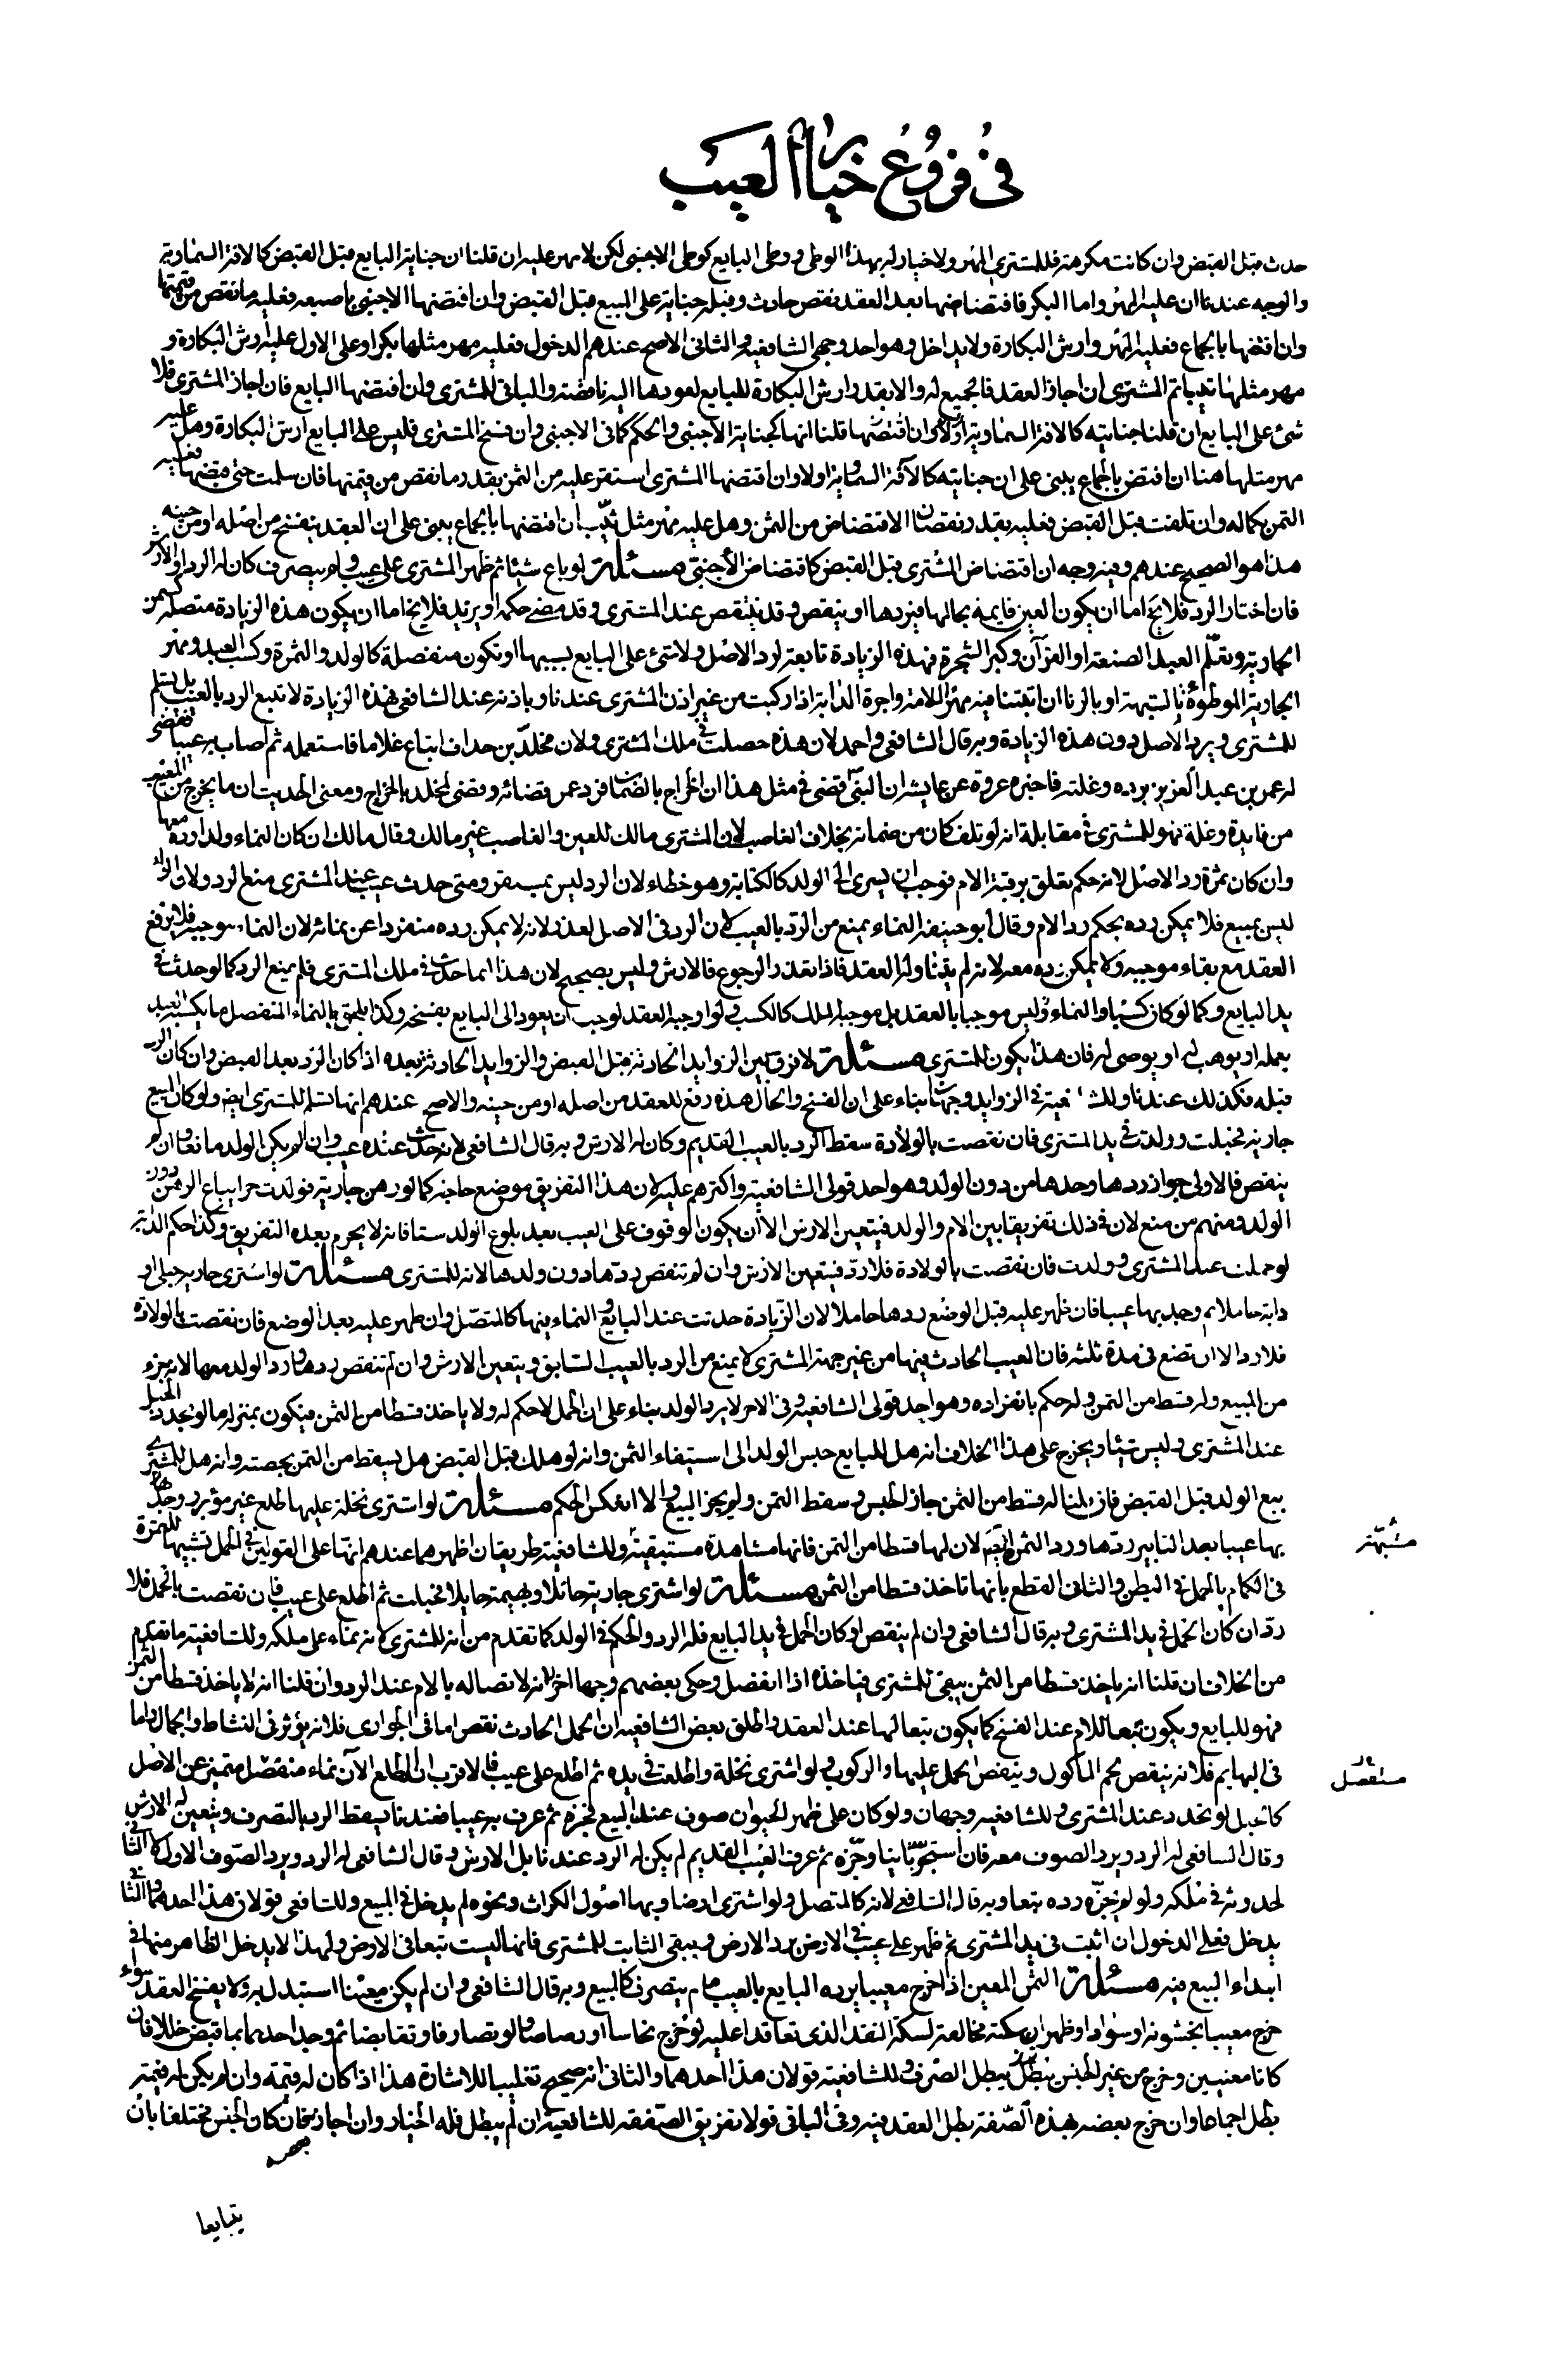 في فروع خيار العيب
حدث قبل القبض وان كانت مكرهة فللمشتري المهر ولا خيار له بهذا الوطي ووطى البايع كوطى الاجنبى لكن لا مهر عليه ان قلنا ان جناية البايع قبل القبض كالافة السماوية
والوجه عندنا ان عليه المهر واما البكر فاقتضاضها بعد العقد نقص حادث وقبله جناية على المبيع قبل القبض وان اقتضها الاجنبي باصبعه فعليه ما نقص من قيمتها
وان اقتضها بالجماع فعليه المهر وارش البكارة ولا يداخل وهو احد وجهي الشافعية والثانى الاصح عندهم الدخول فعليه مهر مثلها بكرا وعلى الاول عليه ارش البكارة و
مهر مثلها ثيبا ثم المشترى ان اجاز العقد فالجميع له والا بقدر ارش البكارة للبايع لعودها اليه ناقصة والباقى للمشترى وان اقتضها البايع فان اجاز المشترى فلا
شئ على البايع ان قلنا جنايته كالافة السماوية او لا وان اقتضها قلنا انها كجناية الاجنبى والحكم كما فى الاجنبى وان فسخ المشترى فليس على البايع ارش البكارة وهل عليه
مهر مثلها هنا ان اقتض بالجماع يبنى على ان جنايته كالآفة السماوية او لا وان اقتضها المشترى استقر عليه من الثمن بقدر ما نقص من قيمتها فان سلمت حتى قبضها فعليه
الثمن بكماله وان تلفت قبل القبض فعليه بقدر نقصان الاقتضاض من الثمن وهل عليه مهر مثل ثيّب ان اقتضها بالجماع يبنى على ان العقد ينفسخ من اصله او من حينه
هذا هو الصحيح عندهم وفيه وجه ان اقتضاض المشترى قبل القبض كاقتضاض الأجنبىّ مسئلة لو باع شيئا ثم ظهر المشترى على عيب ولم يتصرف كان له الرد او الارش
فان اختار الرد فلا يخ اما ان يكون العين قايمة بحالها فيردها او ينقص وقد ينقص عند المشترى وقد مضى حكمه او يزيد فلا يخ اما ان يكون هذه الزيادة متصلة كسمن
الجارية وتعلّم العبد الصنعة او القرآن وكبر الشجرة فهذه الزيادة تابعة لرد الاصل ولا شئ على البايع بسببها او تكون منفصلة كالولد والثمرة وكسب العبد ومهر
الجارية الموطوئة بالشبهة او بالزنا ان اثبتنا فيه مهر الامة واجرة الدابة اذا ركبت من غير اذن المشترى عندنا وباذنه عند الشافعى فهذه الزيادة لا تتبع الرد بالعيب بل يسلم
للمشترى ويرد الاصل دون هذه الزيادة وبه قال الشافعى واحمد لان هذه حصلت فى ملك المشترى ولان مخلدّ بن خداف ابتاع غلاما فاستعمله ثم اصاب به عيبا فقضى
له عمر بن عبد العزيز برده وغلته فاخبره عروة عن عايشه ان النبىّ قضى فى مثل هذا ان الخراج بالضمان فرد عمر قضائه وقضى لمخلد بالخراج ومعنى الحديث ان ما يخرج من المبيع
من فايدة وغلة فهو للمشترى فى مقابلة انه لو تلف كان من ضمانه بخلاف الغاصب لان المشترى مالك للعين والغاصب غير مالك وقال مالك ان كان النماء ولدا رده معها
وان كان ثمرة رد الاصل لانه حكم تعلق برقبة الام فوجب ان يسرى الى الولد كالكتابة وهو خطاء لان الرد ليس بمستقر ومتى حدث عيب عند المشترى منع الرد ولان الولد
ليس بمبيع فلا يمكن رده بحكم رد الام وقال ابو حنيفة النماء يمنع من الردّ بالعيب لان الرد فى الاصل تعذر لانه لا يمكن رده منفردا عن نمائه لان النماء موجبه فلا يرفع
العقد مع بقاء موجبه ولا يمكن رده معه لانه لم يتناوله العقد فاذا تعذر الرجوع فالارش وليس بصحيح لان هذا انما حدث فى ملك المشترى فلم يمنع الرد كما لو حدث فى
يد البايع وكما لو كان كسبا والنماء وليس موجبا بالعقد بل موجبه الملك كالكسب ولو اوجبه العقد لوجب ان يعود الى البايع بفسخه وكذا يلحق بالنماء المنفصل ما يكسبه العبد
بعمله او يوهب له او يوصى له فان هذا يكون للمشترى مسئلة لا فرق بين الزوايد الحادثة قبل القبض والزوايد الحادثة بعده اذا كان الرد بعد القبض وان كان الرد
قبله فكذلك عندنا وللشافعية فى الزوايد وجهان بناء على ان الفسخ والحال هذه رفع للعقد من اصله او من حينه والاصح عندهم انها تسلم للمشترى ايضو ولو كان المبيع
جارية فحبلت وولدت فى يد المشترى فان نقصت بالولادة سقط الرد بالعيب القديم وكان له الارش وبه قال الشافعى لانه حدث عنده عيب وان لم يكن الولد مانعا وان لم
ينقص فالاولى جواز ردها وحدها من دون الولد وهو احد قولى الشافعية واكثرهم عليه لان هذا التفريق موضع حاجة كما لو رهن جارية فولدت حرا يباع الرهن دون
الولد ومنهم من منع لان فى ذلك تفريقا بين الام والولد فيتعين الارش الا ان يكون الوقوف على العيب بعد بلوغ الولد ستا فانه لا يحرم بعده التفريق وكذا حكم الدابة
لو حملت عند المشترى وولدت فان نقصت بالولادة فلا رد فيتعين الارش وان لم تنقص ردها دون ولدها لانه للمشترى مسئلة لو اشترى جارية حبلى او
دابة حاملا ثم وجد بها عيبا فان ظهر عليه قبل الوضع ردها حاملا لان الزّيادة حدثت عند البايع والنماء فيها كالمتصّل وان ظهر عليه بعد الوضع فان نقصت بالولادة
فلا رد الا ان تضع فى مدة ثلثه فان العيب الحادث فيها من غير جهة المشترى لا يمنع من الرد بالعيب السّابق ويتعين الارش وان لم تنقص ردها ورد الولد معها لانه جزء
من المبيع وله قسط من الثمن وله حكم بانفراده وهو احد قولى الشافعية وفى الاخر لا يرد الولد بناء على ان الحمل لا حكم له ولا ياخذ قسطا من الثمن فيكون بمنزلة ما لو تجدد الحبل
عند المشترى وليس شيئا ويخرج على هذا الخلاف انه هل للبايع حبس الولد الى استيفاء الثمن وانه لو هلك قبل القبض هل يسقط من الثمن بحصته وانه هل للمشترى
بيع الولد قبل القبض فان قلنا له قسط من الثمن جاز الحبس وسقط الثمن ولم يجز البيع والا انعكس الحكم مسئلة لو اشترى نخلة عليها طلع غير مؤبر ووجد بها
بها عيبا بعد التابير ردها ورد الثمرة ايضو لان لها قسطا من الثمن فانها مشاهدة مستيقنة وللشافعية طريقان اظهرهما عندهم انها على القولين فى الحمل تشبيها للثمرة
فى الكمام بالحمل فى البطن والثانى القطع بانها تاخذ قسطا من الثمن مسئلة لو اشترى جارية حائلا او بهيمة حايلا فحبلت ثم اطلع على عيب فان نقصت بالحمل فلا
ردّ ان كان الحمل فى يد المشترى وبه قال الشافعى وان لم ينقص او كان الحمل فى يد البايع فله الرد والحكم فى الولد كما تقدم من انه للمشترى لانه نماء على ملكه وللشافعية ما تقدم
من الخلاف ان قلنا انه ياخذ قسطا من الثمن بقى للمشترى فياخذه اذا انفصل وحكى بعضهم وجها اخر انه لاتصاله بالام عند الرد وان قلنا انه لا ياخذ قسطا من الثمن
فهو للبايع ويكون تبعا للام عند الفسخ كما يكون تبعا لها عند العقد واطلق بعض الشافعية ان الحمل الحادث نقص اما فى الجوارى فلانه يؤثر فى النشاط والجمال واما
فى البهايم فلانه ينقص لحم الماكول وينقص الحمل عليها والركوب ولو اشترى نخلة واطلعت فى يده ثم اطلع على عيب فالاقرب ان الطلع الآن نماء منفصل متميز عن الاصل
كالحبل لو تجدد عند المشترى وللشافعية وجهان ولو كان على ظهر الحيوان صوف عند البيع فجزه ثم عرف به عيبا فعندنا يسقط الرد بالتصرف ويتعين له الارش
وقال الشافعى له الرد ويرد الصوف معه فان استجزّ ثانيا وجزّه ثم عرف العيب القديم لم يكن له الرد عندنا بل الارش وقال الشافعى له الرد ويرد الصوف الاول لا الثانى
لحدوثه فى ملكه ولو لم يجزّه رده تبعا وبه قال الشافعى لانه كالمتصل ولو اشترى ارضا وبها اصول الكراث ونحوه لم يدخل فى المبيع وللشافعى قولان هذا احدهما والثانى
يدخل فعلى الدخول ان انبت فى يد المشترى ثم ظهر على عيب فى الارض يرد الارض ويبقى الثابت للمشترى فانها ليست تبعا فى الارض ولهذا لا يدخل الظاهر منها فى
ابتداء البيع فيه مسئلة الثمن المعين اذا خرج معيبا يرده البايع بالعيب ما لم يتصرف كالمبيع وبه قال الشافعى وان لم يكن معيّنا استبدل به ولا يفسخ العقد سواء
خرج معيبا بخشونة او سواد او ظهر ان سكته مخالفة لسكة النقد الذى تعاقدا عليه او خرج نحاسا او رصاصا ولو تصارفا وتقابضا ثم وجد احدهما بما قبض خللا فان
كانا معنيين وخرج من غير الجنس بطل الصّرف وللشافعية قولان هذا احدهما والثانى انه صحيح تغليبا للاشارة هذا اذا كان له قيمة وان لم يكن له قيمة
بطل اجماعا وان خرج بعضه بهذه الصّفة بطل العقد فيه وفى الباقى قولا تفريق الصّفقه للشافعية ان لم يبطل فله الخيار وان اجاز فان كان الجنس مختلفا بان
يتبايعا
منفصل